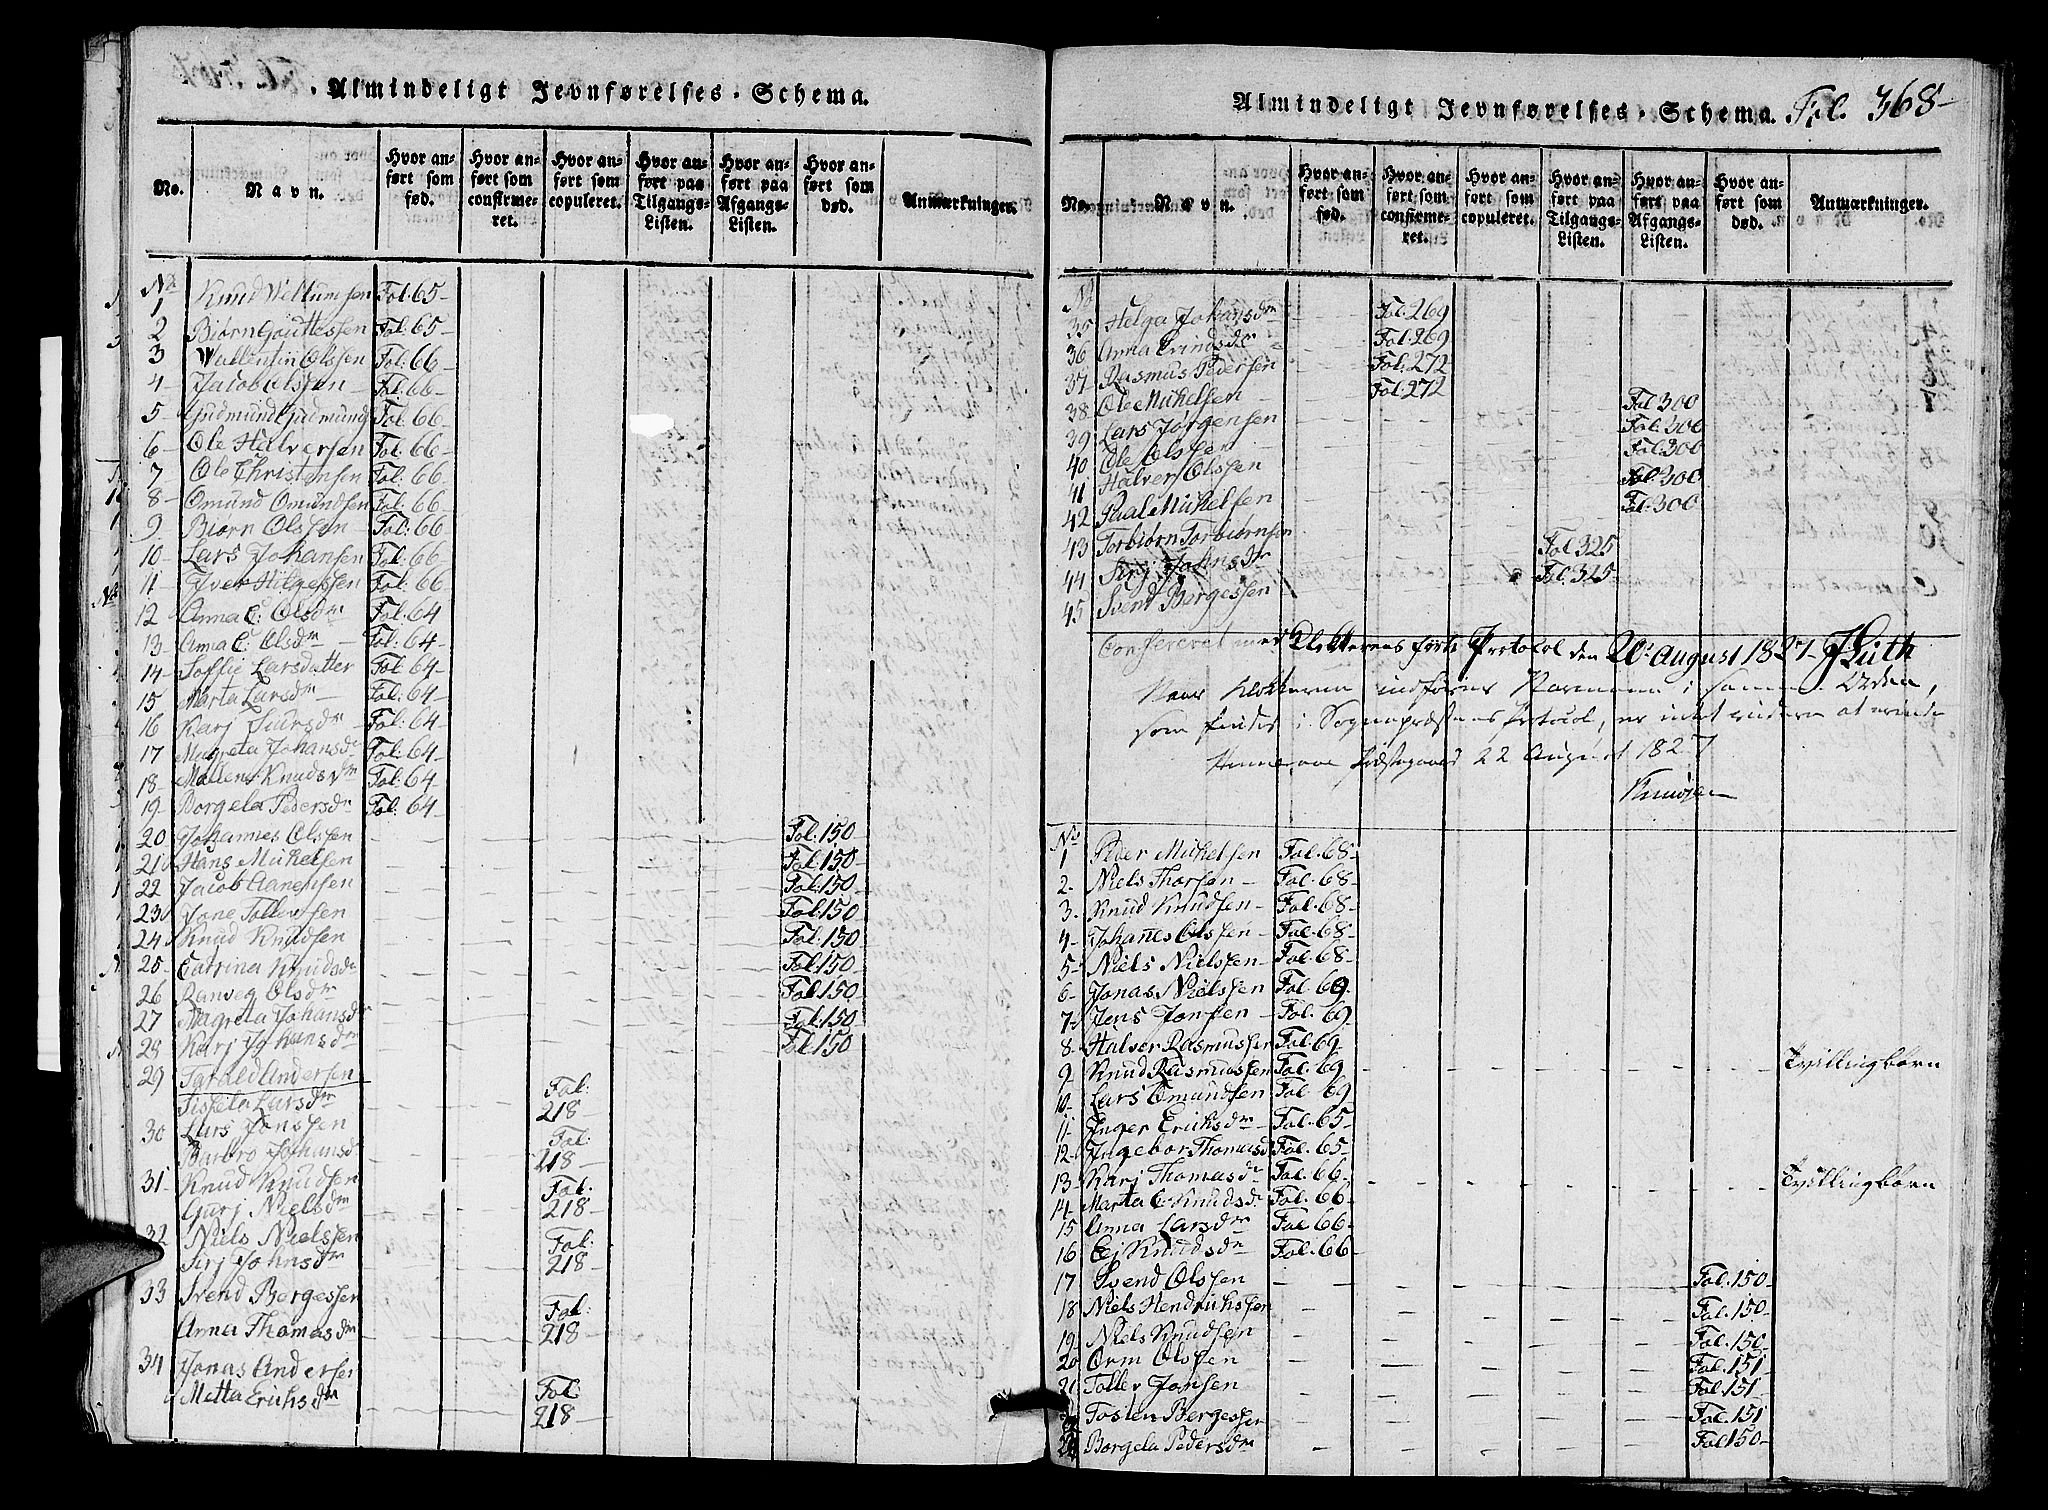 Almindeligt Jevnførelses-Schema.
No. Navn. Hvor anført som fød. Hvor anført som confirmeret. Hvor anført som copuleret. Hvor anført paa Tilgangs-Listen. Hvor anført paa Afgangs-Listen. Hvor anført som død. Anmærkninger.
No
1 Knud Fol. 65-
2 Biørn Fol: 65-
3 Wallentin Olssen Fol: 66-
4- Jacob Olssen - Fol: 66-
5 Gudmund Gudmunds Fol: 66
6- Ole Halversen Fol: 66-
7 Ole Christensen Fol: 66
8- Omund Omundsen Fol: 66
9- Biørn Olssen Fol: 66
10- Lars Johansen Fol: 66
11- Fol: 66
12 Anna C: Olsdr Fol: 64
13- Anna C: Olsdr - Fol: 64-
14- Soffie Larsdatter Fol: 64-
15 Marta Larsdr - Fol: 64-
16 Karj Fol: 64-
17 Magreta Johansdr Fol: 64-
18- Malene Knudsdr Fol: 64-
19- Borgela Pedersdr Fol: 64
20 Johannes Olssen Fol: 150-
21 Hans Mickelsen Fol: 150-
22 Jacob Aanensen Fol: 150-
23 Jone Tollevsen Fol: 150
24 Knud Knudsen Fol: 150
25- Catrina Knudsdr Fol: 150-
26 Ranveg Olsdr Fol 150-
27 Magreta Johansdr Fol: 150
28 Karj Johansdr Fol 150
29 Tarald Andersen
Siskela Larsdr Fol: 218-
30 Lars Jonssen
Barbro Johansdr Fol: 218-
31- Knud Knudsen
Gurj Nielsdr Fol: 218-
32 Niels Nielssen
Sirj Johnsdr Fol: 218-
33 Svend Bergessen
Anna Thomasdr Fol: 218-
34 Jonas Andersen
Metta Erichsdr Fol: 218-
Almindeligt Jevnførelses-Schema. Fol. 368-
No. Navn. Hvor anført som fød. Hvor anført som confirmeret. Hvor anført som copuleret. Hvor anført paa Tilgangs-Listen. Hvor anført paa Afgangs-Listen. Hvor anført som død. Anmærkninger.
No
35 Helga Johansdr Fol. 269
36 Anna Fol. 269
37 Rasmus Pedersen Fol. 272
38 Ole Mickelsen - Fol. 272
39 Lars Jørgensen Fol 300
40 Ole Olssen Fol. 300
41 Halver Olssen Fol. 300
42 Paal Mickelsen Fol. 300
43 Torbiørn Torbiørnsen Fol. 300
44 Sirj Johnsdr Fol 325
45 Svend Bergessen Fol. 325-
Confereret med Klokkerens førte Protocol den 20de August 1827- JRuth
Naar Klokkeren indfører Navnene i samme Orden,
som findes i Sognepræstens Protocol, er intet videre at erindre
22 August 1827
No
1 Peder Mickelsen Fol. 68-
2- Niels Thorsen - Fol: 68-
3- Knud Knudsen - Fol. 68-
4- Johanes Olssen - Fol. 68-
5- Niels Nielssen - Fol: 68-
6- Jonas Nielssen Fol. 69.
7- Jens Jonsen - Fol. 69
8- Halver Rasmussen Fol. 69-
9- Knud Rasmussen Fol. 69 Tvillingbørn
10- Lars Omundsen Fol 69
11- Inger Erichsdr - Fol. 65-
12- Ingebor Thomasd Fol. 65-
13- Karj Thomasdr Fol. 66
14- Marta C. Knudsdr Fol. 66- Tvillingbørn
15 Anna Larsdr Fol 66
16 Ej Knudsdr Fol. 66-
17 Svend Olssen Fol. 150-
18 Niels Hendrichssen Fol. 150-
19- Niels Knudsen Fol. 150-
20 Orm Olssen Fol. 151
21 Tollev Jonsen Fol. 151
Tosten Bergessen Fol. 151
Borgela Pedersdr Fol 150-